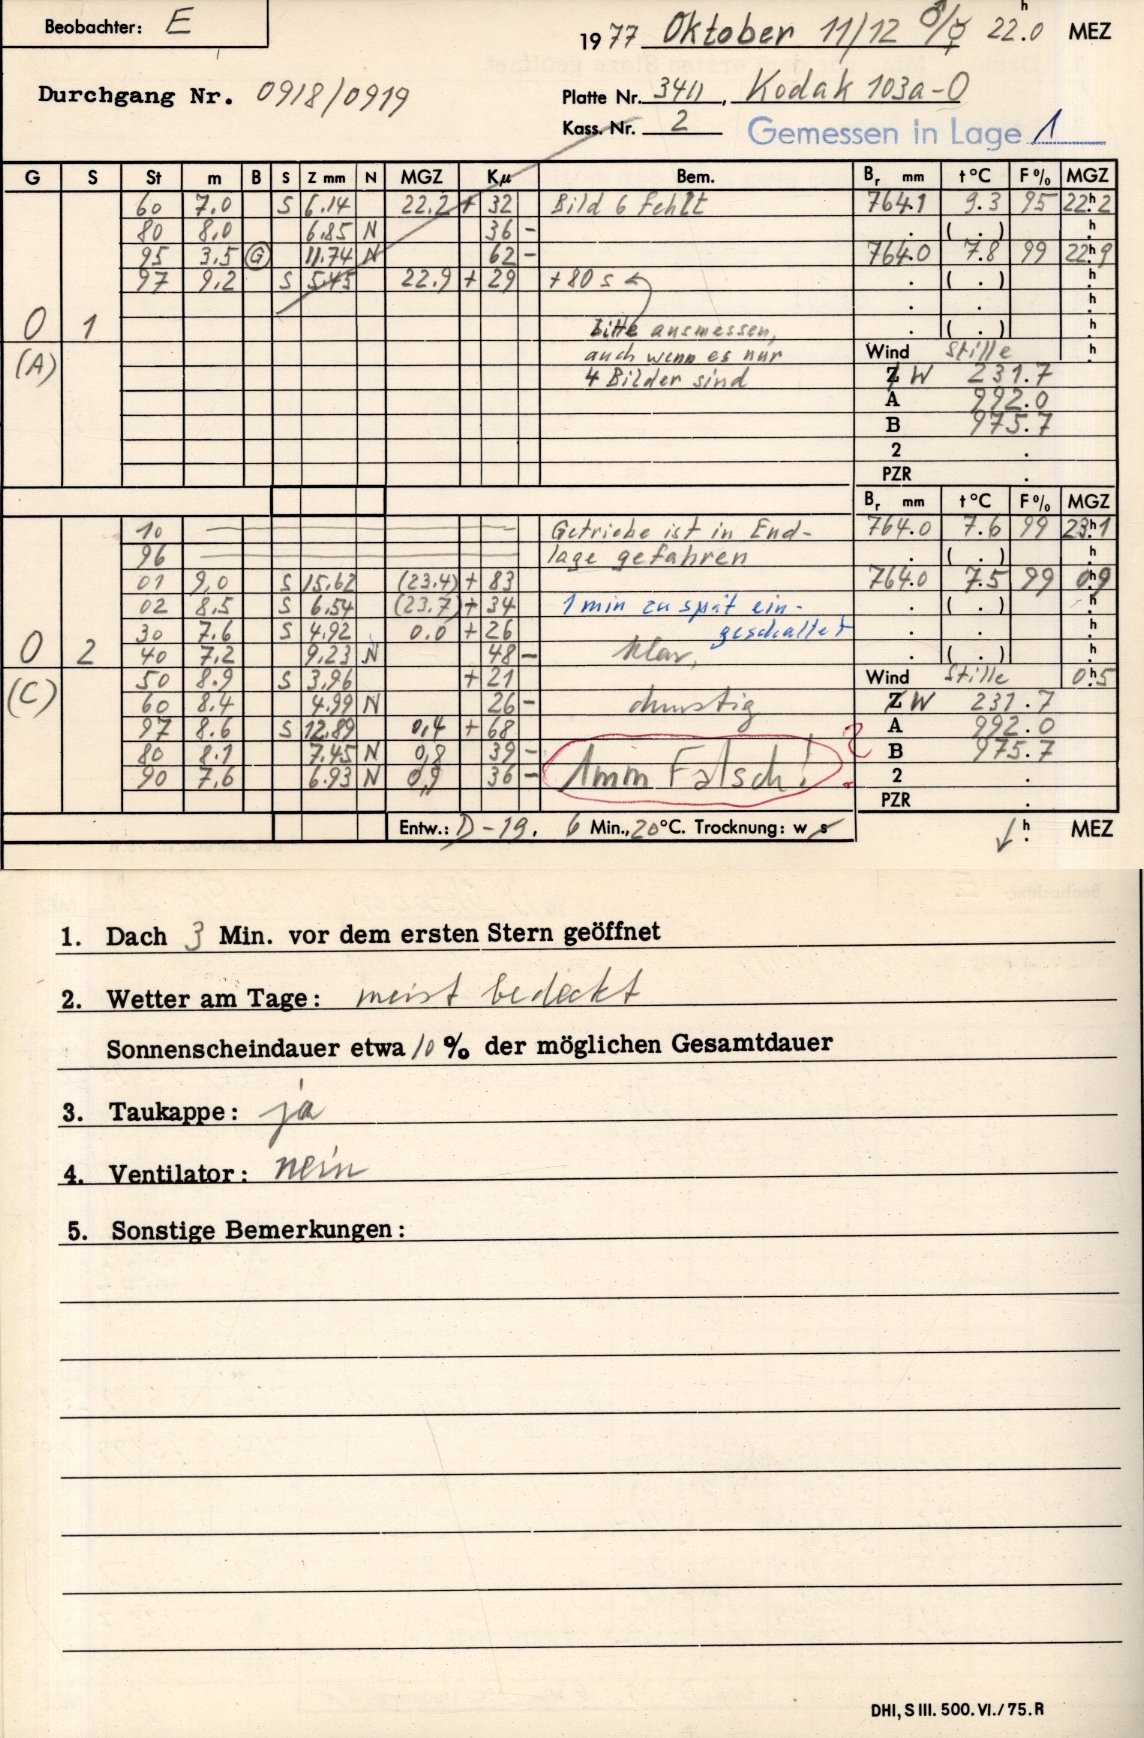 Beobachter: E
1977 Oktober 11/12 ♂/☿ 22.0 h MEZ
Durchgang Nr. 0918/0919
Platte Nr. 3411, Kodak 103a-O
Kass. Nr. 2 Gemessen in Lage 1
G S St m B S Z mm N MGZ Kμ Bem. Br mm t°C F% MGZ
60 7.0 S 6.14 22.2 + 32 Bild 6 fehlt 764.1 9.3 95 22h2
80 8.0 6.85 N 36 - . ( . ) h
95 3.5 G 11.74 N 62 - 764.0 7.8 99 22h9
97 9.2 S 5.45 22.9 + 29 +80 s . ( . ) h
. . h
0 1 bitte ausmessen, . ( . ) h
(A) auch wenn es nur Wind Stille h
4 Bilder sind Z W 231.7
A 992.0
B 975.7
2 .
PZR .
Br mm t°C F% MGZ
10 Getriebe ist in End- 764.0 7.6 99 23h1
96 lage gefahren . ( . ) h
01 9.0 S 15.62 (23.4) + 83 764.0 7.5 99 0h9
02 8.5 S 6.54 (23.7) + 34 1 min zu spät ein- . ( . ) h
30 7.6 S 4.92 0.0 + 26 geschaltet . . h
0 2 40 7.2 9.23 N 48 - klar, . ( . ) h
(C) 50 8.9 S 3.96 + 21 Wind Stille 0h5
60 8.4 4.99 N 26 - dunstig Z W 231.7
97 8.6 S 12.89 0,4 + 68 A 992.0
80 8.1 7.45 N 0,8 39 - B 975.7
90 7.6 6.93 N 0,9 36 - 1mm Falsch! 2 .
PZR .
Entw.: D-19. 6 Min., 20°C. Trocknung: w s h MEZ
1. Dach 3 Min. vor dem ersten Stern geöffnet
2. Wetter am Tage: meist bedeckt
Sonnenscheindauer etwa 10 % der möglichen Gesamtdauer
3. Taukappe: ja
4. Ventilator: nein
5. Sonstige Bemerkungen:
DHI, S III. 500. VI./75. R